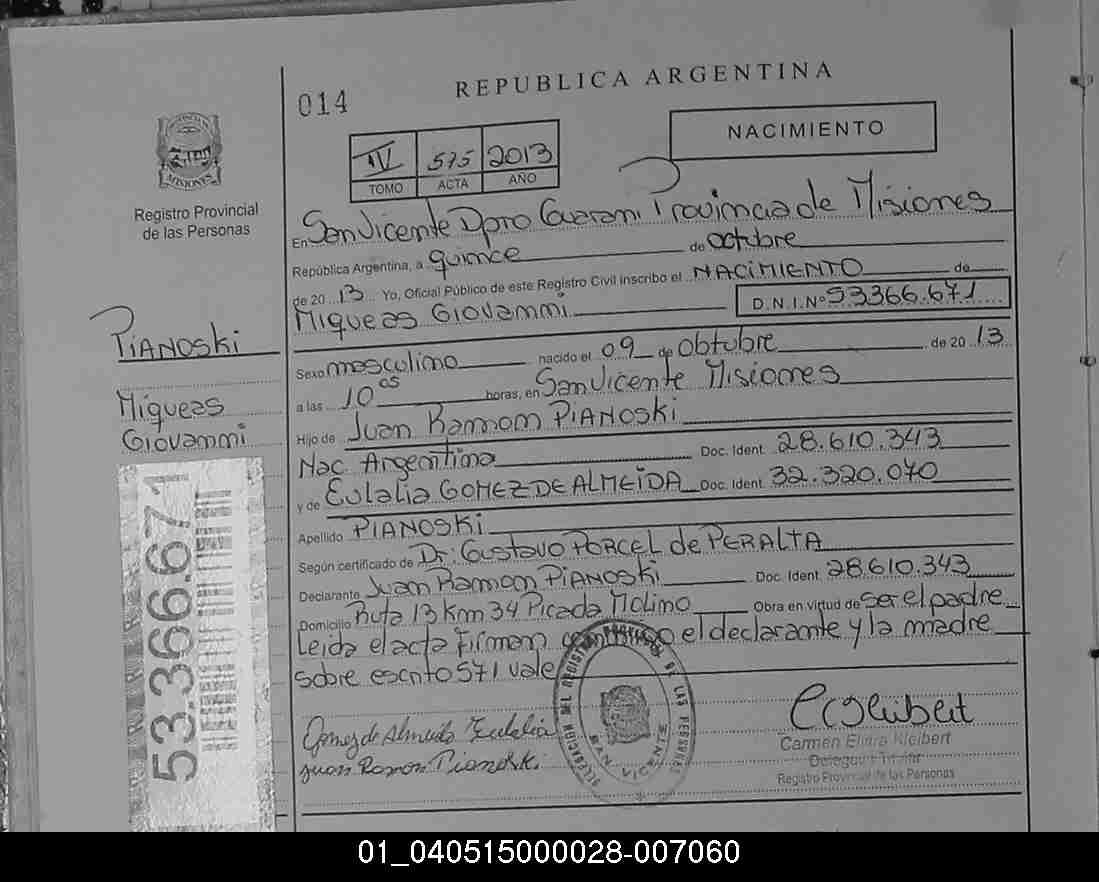 014
REPUBLICA ARGENTINA
NACIMIENTO
IV 575 2013
TOMO ACTA AÑO
PROVINCIA DE
MISIONES
Registro Provincial
de las Personas
En San Vicente Dpro Guarani Provincia de Misiones
República Argentina, a quince de octubre
de 2013 Yo, Oficial Público de este Registro Civil inscribo el NACIMIENTO de
Miqueas Giovanni D.N.I.Nº 53366.671
PIANOSKI
Miqueas
Giovanni
Sexo masculino nacido el 09 de Obtubre de 2013
a las 10 05 horas, en San Vicente Misiones
Hijo de Juan Ramon PIANOSKI
Nac Argentina Doc. Ident. 28.610.343
y de Eulalia GOMEZ DE ALMEIDA Doc. Ident. 32.320.070
Apellido PIANOSKI
Según certificado de Dr: Gustavo PORCEL de PERALTA
Declarante Juan Ramon PIANOSKI Doc. Ident. 28.610.343
Domicilio Ruta 13 Km 34 Picada Molino Obra en virtud de ser el padre
Leida el acta Firman conmigo el declarante y la madre
sobre escrito 571 vale
53.366.671
DELEGACION DEL REGISTRO PROVINCIAL DE LAS PERSONAS
SAN VICENTE
Gomez de Almeida Eulalia
Juan Ramon Pianoski
Carmen Elvira Kleibert
Delegada Titular
Registro Provincial de las Personas
01_040515000028-007060